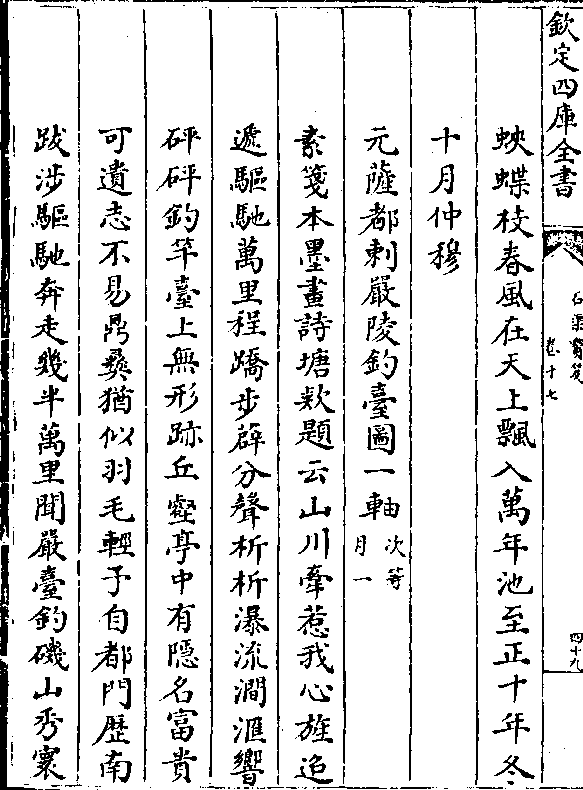 欽定四庫全書
石渠寶笈
卷十七
四十九
蛺蝶枝春風在天上飄入萬年池至正十年冬
十月仲穆
元薩都剌嚴陵釣臺圖一軸次等
月一
素箋本墨畫詩塘欵題云山川牽惹我心旌迢
遞驅馳萬里程蹻步辟分聲析析瀑流澗滙響
砰砰釣竿臺上無形跡丘壑亭中有隠名富貴
可遺志不易鼎彛猶似羽毛輕予自都門歴南
跋涉驅馳奔走幾半萬里聞嚴臺釣磯山秀寰